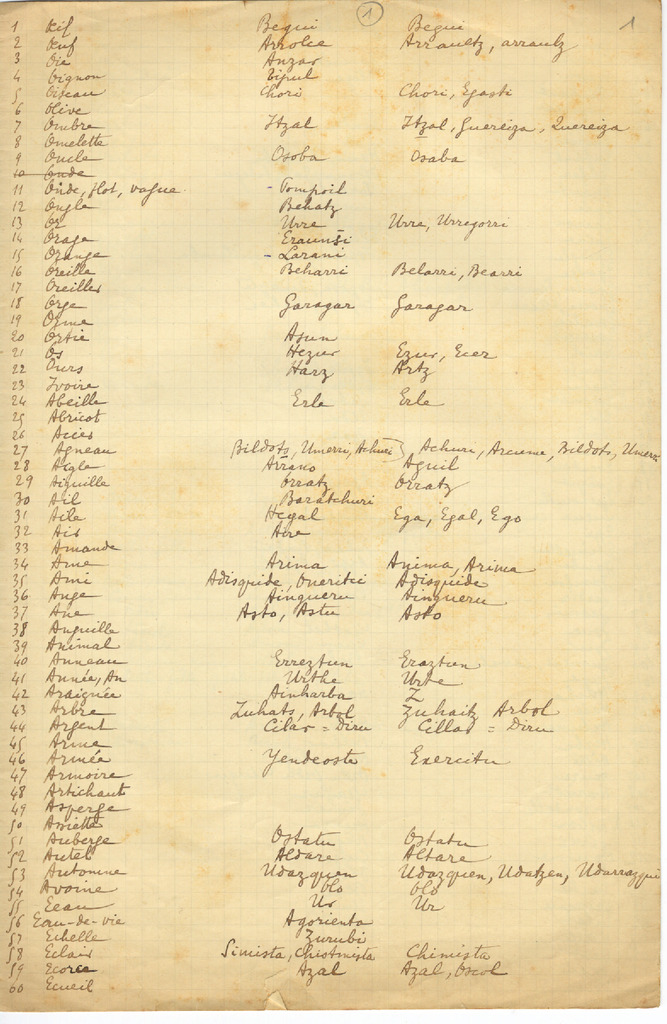 1
1
1 Œil Begui Begui
2 Œuf Arrolce Arraultz, arrautz
3 Oie Anzar
4 Oignon Tipul
5 Oiseau Chori Chori, Egasti
6 Olive
7 Ombre Itzal Itzal, Guereiza, Quereiza
8 Omelette
9 Oncle Osoba Osaba
10 Onde
11 Onde, flot, vague - Pompoil
12 Ongle Behatz
13 Or Urre Urre, Urregorri
14 Orage Eraunsi
15 Orange - Larani
16 Oreille Beharri Belarri, Bearri
17 Oreiller
18 Orge Garagar Garagar
19 Orme
20 Ortie Asun
21 Os Hezur Ezur, Ecer
22 Ours Harz Artz
23 Ivoire
24 Abeille Erle Erle
25 Abricot
26 Acier
27 Agneau Bildots, Umerri, Achuri Achuri, Arcume, Bildots, Umerri
28 Aigle Arrano Aguil
29 Aiguille Orratz Orratz
30 Ail Baratchuri
31 Aile Hegal Ega, Egal, Ego
32 Air Aire
33 Amande
34 Ame Arima Anima, Arima
35 Ami Adisquide, Oneritci Adisquide
36 Ange Aingueru Aingueru
37 Ane Asto, Astu Asto
38 Anguille
39 Animal
40 Anneau Erreztun Eraztun
41 Année, An Urthe Urte
42 Araignée Ainharba
43 Arbre Zuhats, Arbol Zuhaitz Arbol
44 Argent Cilar = Diru Cillar = Diru
45 Arme
46 Armée Yendeoste Exercitu
47 Armoire
48 Artichaut
49 Asperge
50 Assiette
51 Auberge Ostatu Ostatu
52 Autel Aldare Altare
53 Automne Udazquen Udazquen, Udatzen, Udarrazquen
54 Avoine Olo Olo
55 Eeau Ur Ur
56 Eau-de-vie Agorienta
57 Echelle Zurubi
58 Eclair Simista, Chistmista Chimista
59 Ecorce Azal Azal, Oscol
60 Ecueil